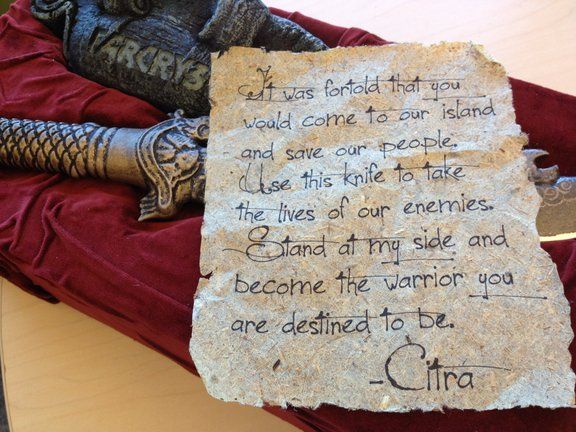 FARCRY3
It was fortold that you
would come to our island
and save our people.
Use this knife to take
the lives of our enemies.
Stand at my side and
become the warrior you
are destined to be.
-Citra